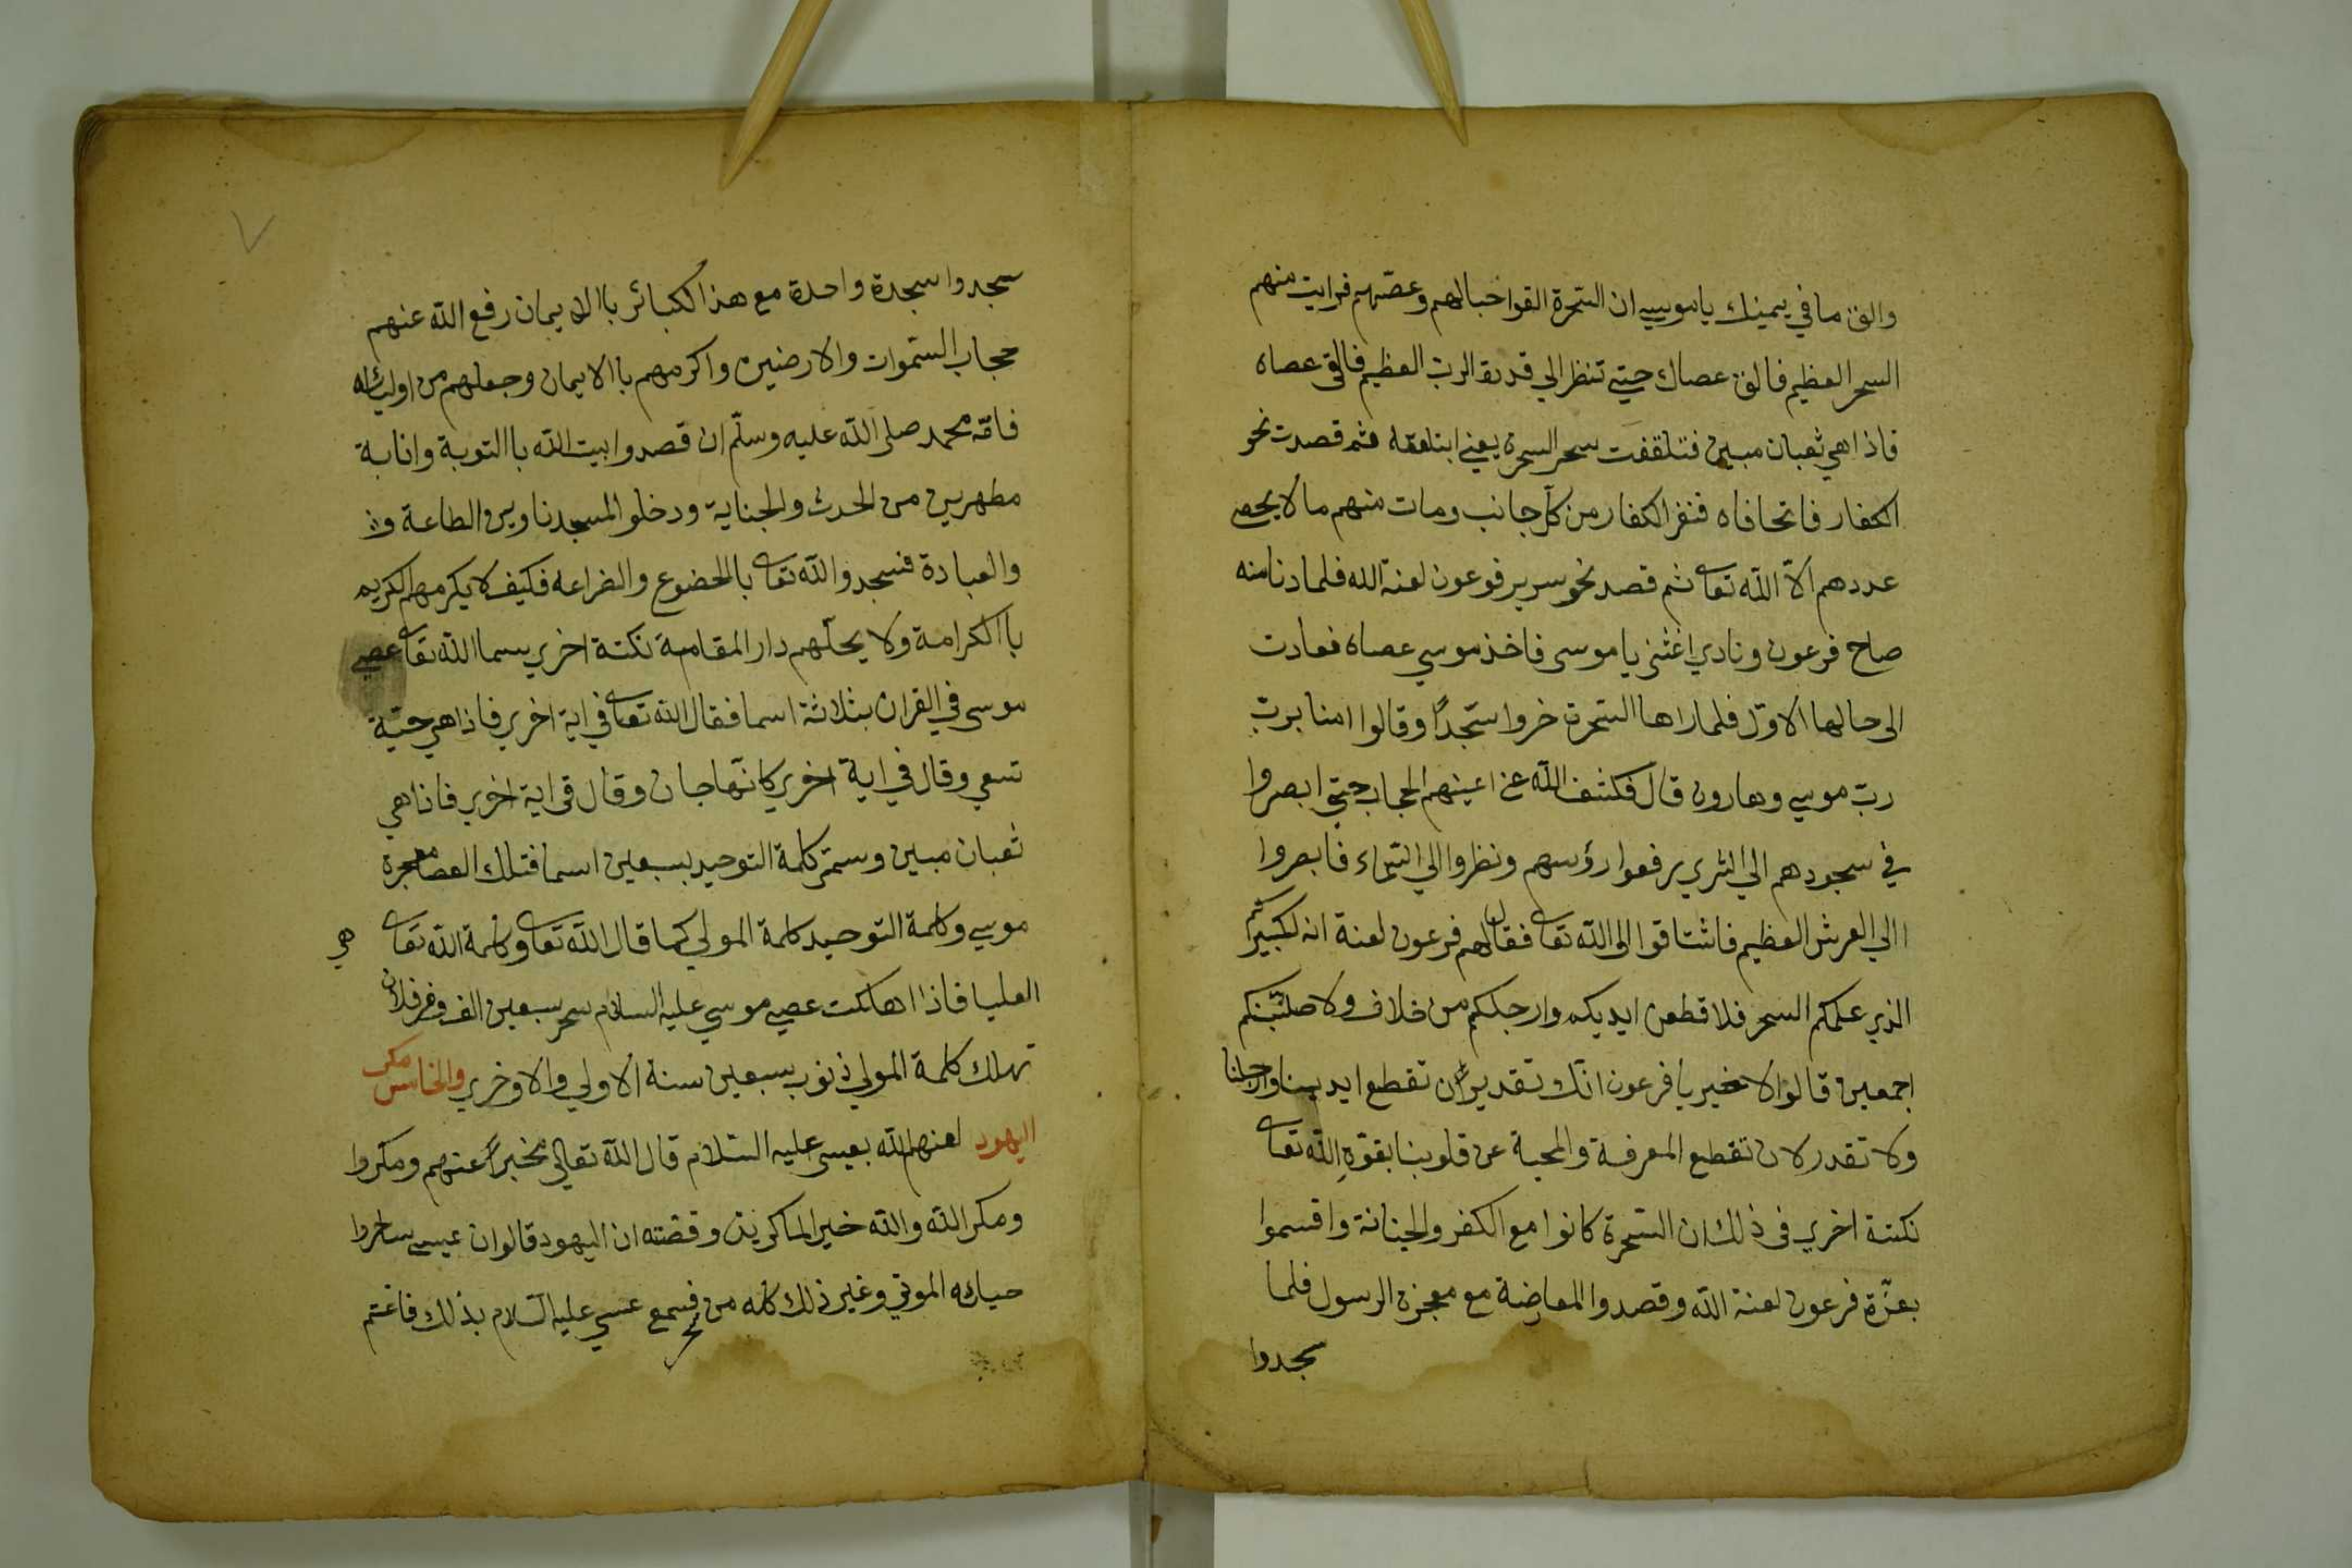 والق ما في يمينك يا موسي ان السحرة القوا حبالهم وعصيهم فرايت منهم
السحر العظيم فالق عصاك حتي تنظر الي قدرة الرب العظيم فالقي عصاه
فاذا هي ثعبان مبين فتلقفت سحر السحرة يعني ابتلعته ثم قصدت نحو
الكفار فاتحافاه فنفر الكفار من كل جانب ومات منهم ما لا يحصي
عددهم الّا اللّه تعالى ثم قصد نحو سرير فرعون لعنة الله فلما دنا منه
صاح فرعون ونادي اغثني يا موسى فاخذ موسي عصاه فعادت
الى حالها الاوّل فلما راها السّحرة خروا سجّدًا وقالوا امنا بربّ
ربّ موسي وهارون قال فكشف اللّه عن اعينهم الحجاب حتي ابصروا
في سجودهم الي الثري يرفعوا رؤسهم ونظروا الي السّماء فابصروا
االي العرش العظيم فاشتاقوا الى اللّه تعالى فقال لهم فرعون لعنة انه لكبيركم
الذي علمكم السحر فلاقطعن ايديكم وارجلكم من خلاف ولاصلبنّكم
اجمعين قالوا لا خير يا فرعون انّك تقدير ان تقطع ايدينا وارجلنا
ولا تقدر لان تقطع المعرفة والمحبة عن قلوبنا بقوّةِ اللّه تعالى
نكتة اخري في ذلك ان السّحرة كانوا مع الكفر والجنانة واقسموا
بعزّة فرعون لعنة اللّه وقصدوا المعارضة مع معجزة الرسول فلما
سجدوا
سجدوا سجدة واحدة مع هذا الكبائر باالايمان رفع اللّه عنهم
حجاب السّموات والارضين واكرمهم باالايمان وجعلهم من اوليائه
فامّة محمد صلى اللّه عليه وسلّم ان قصدوا بيت اللّه باالتوبة وانابة
مطهرين من الحدث والجناية ودخلوا المسجد ناوين الطاعة
والعبادة فسجدوا للّه تعالى باالخضوع والضراعه فكيف لا يكرمهم الكريم
باالكرامة ولا يحلّهم دار المقامة نكتة اخري سما اللّه تعالى عصي
موسى في القران بثلاثة اسما فقال اللّه تعالى في اية اخري فاذا هي حيّة
تسعي وقال في اية اخري كانّها جان وقال في اية اخري فاذا هي
ثعبان مبين وسمّي كلمة التوحيد بسبعين اسما فتلك العصا معجزة
موسي وكلمة التوحيد كلمة المولي كما قال اللّه تعالى وكلمة اللّه تعالى هي
العليا فاذا اهلكت عصي موسي عليه السلام سحر سبعين الف وقر فلان
تهلك كلمة المولي ذنوب سبعين سنة الاولي والاوخري والخامس مكر
اليهود لعنهم اللّه بعيسى عليه السّلام قال اللّه تعالي مخبرًا عنهم ومكروا
ومكر اللّه واللّه خير الماكرين وقصّته ان اليهود قالوا ان عيسي ساحروا
حياءه الموتي وغير ذلك كله من سحر فسمع عسي عليه السّلام بذلك فاغتم